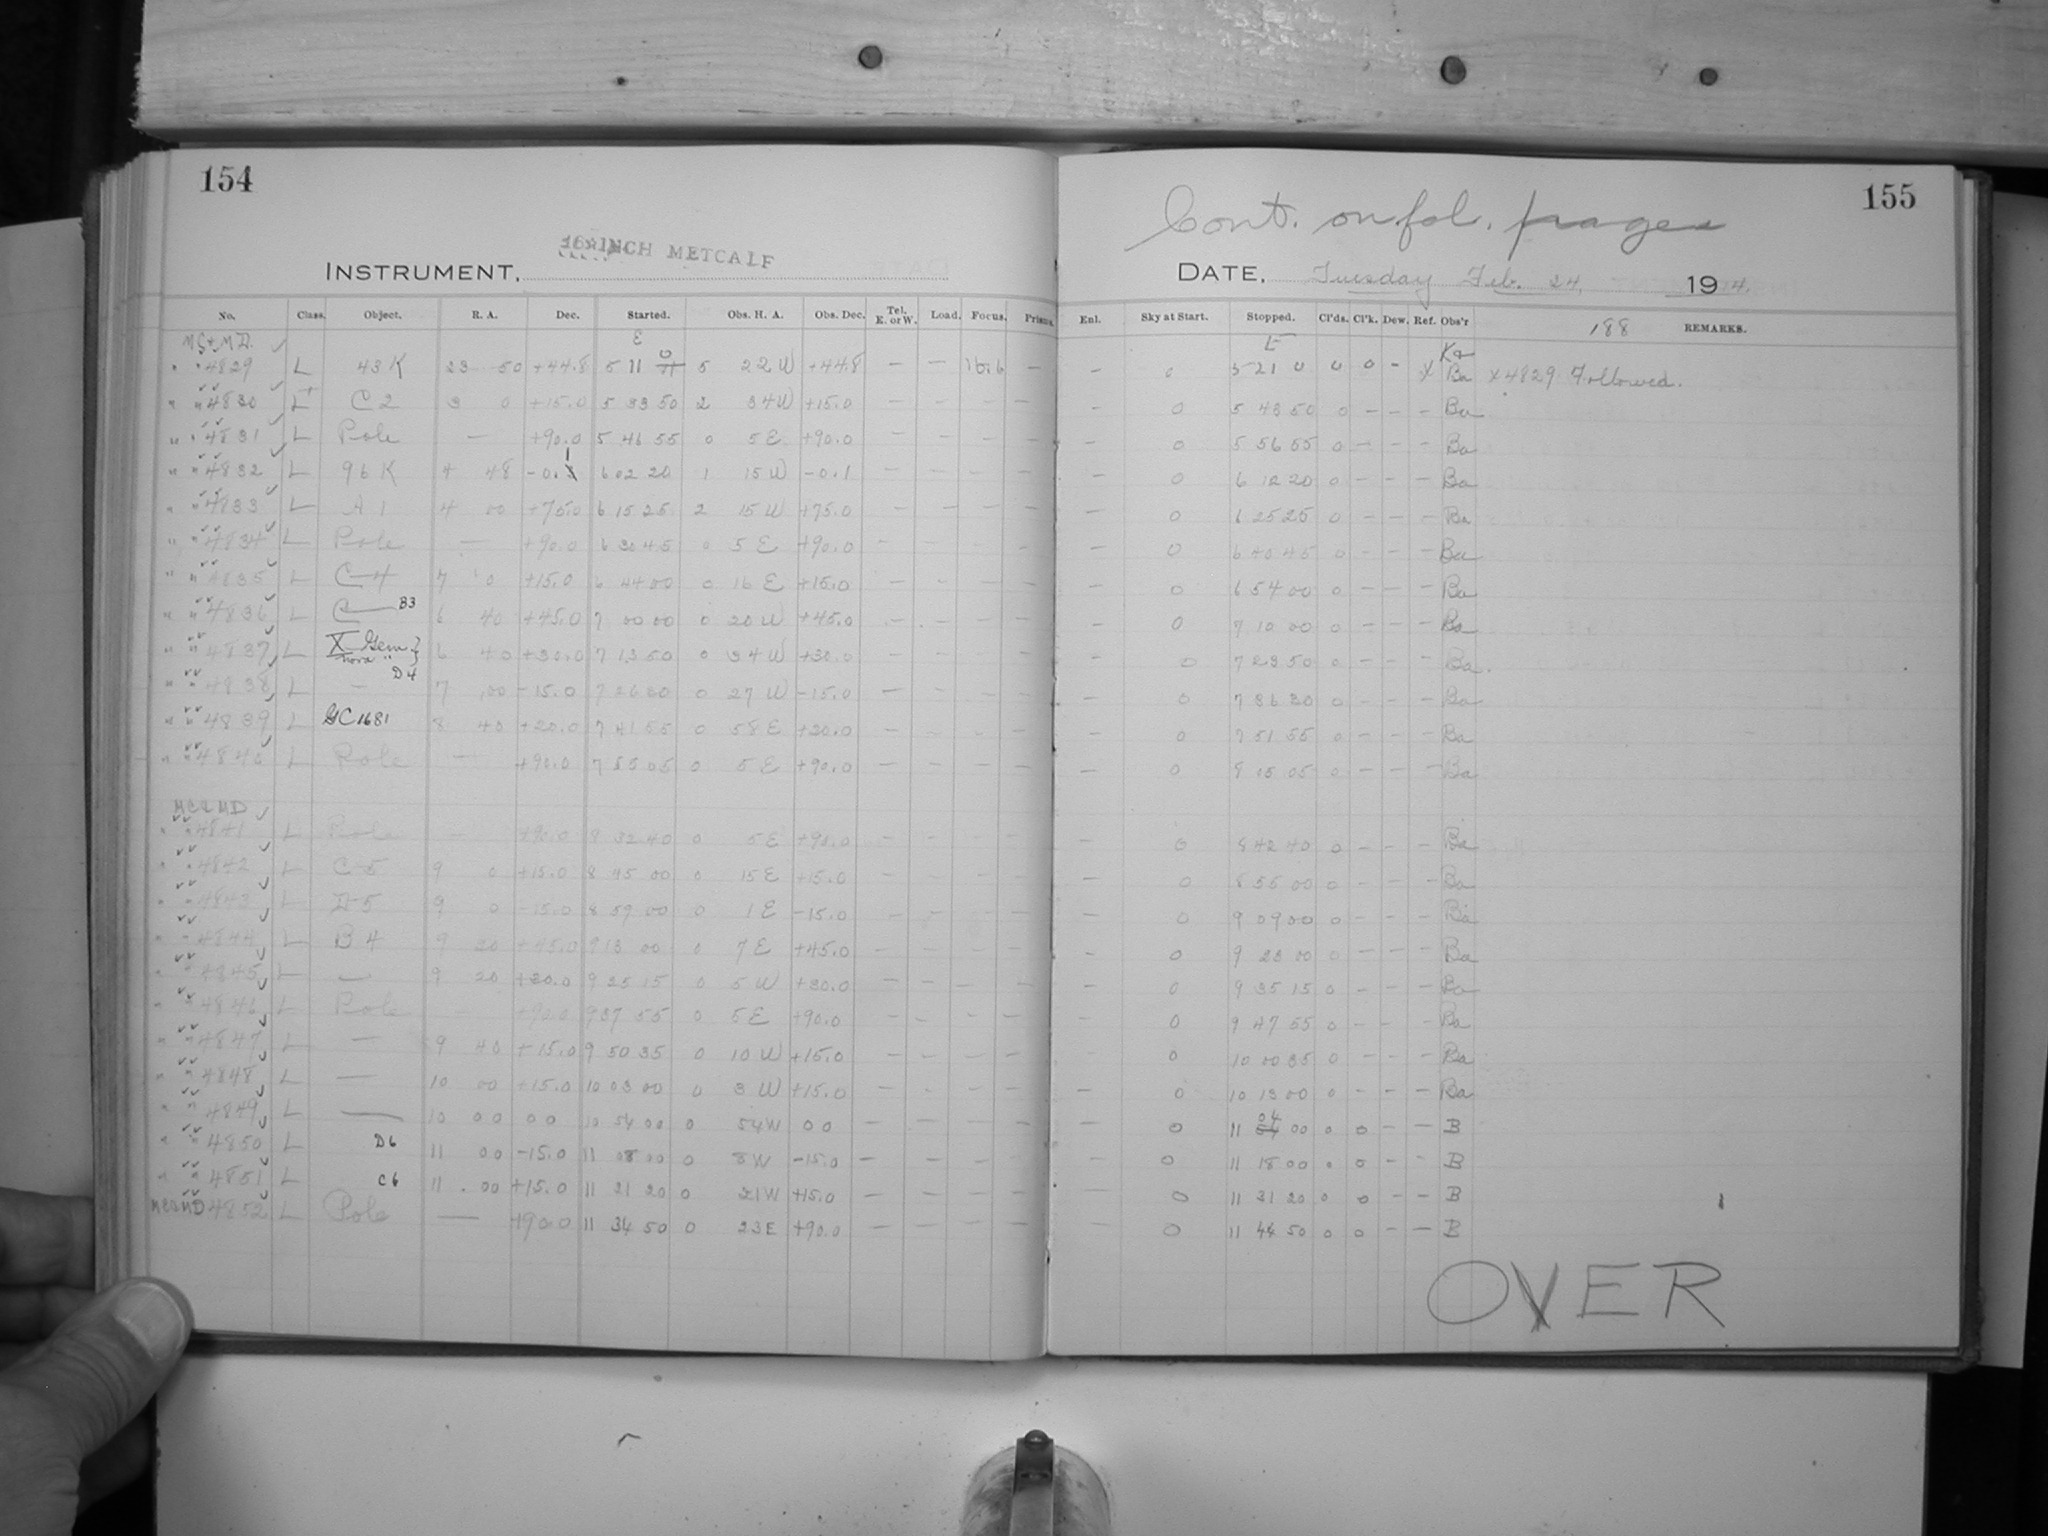 154
155
Cont. on fol. pages
16-INCH METCALF
INSTRUMENT,
DATE, Tuesday Feb. 24, 1914.
No. Class. Object. R. A. Dec. Started. Obs. H. A. Obs. Dec. Tel. E. or W. Load. Focus. Prisms. Enl. Sky at Start. Stopped. Cl'ds. Cl'k. Dew. Ref. Obs'r 188 REMARKS.
MC & MD. E E
" " 4829 L 43 K 23 50 +44.8 5 11 0 5 22 W +44.8 — — 10.6 — — 0 5 21 0 0 0 - X Ka Ba X 4829 Followed.
" " 4830 L+ C 2 3 0 +15.0 5 33 50 2 34 W +15.0 — — — — — 0 5 43 50 0 - - - Ba
" " 4831 L Pole — +90.0 5 46 55 0 5 E +90.0 — — — — — 0 5 56 55 0 - - - Ba
" " 4832 L 96 K 4 48 -0.1 6 02 20 1 15 W -0.1 — — — — — 0 6 12 20 0 - - - Ba
" " 4833 L A 1 4 00 +75.0 6 15 25 2 15 W +75.0 — — — — — 0 6 25 25 0 - - - Ba
" " 4834 L Pole — +90.0 6 30 45 0 5 E +90.0 — — — — — 0 6 40 45 0 - - - Ba
" " 4835 L C 4 7 0 +15.0 6 44 00 0 16 E +15.0 — — — — — 0 6 54 00 0 - - - Ba
" " 4836 L B3 6 40 +45.0 7 00 00 0 20 W +45.0 — — — — — 0 7 10 00 0 - - - Ba
" " 4837 L X Gem } nova " 6 40 +30.0 7 13 50 0 34 W +30.0 — — — — — 0 7 23 50 0 - - - Ba
" " 4838 L — D4 7 00 -15.0 7 26 30 0 27 W -15.0 — — — — — 0 7 36 30 0 - - - Ba
" " 4839 L GC 1681 8 40 +20.0 7 41 55 0 58 E +20.0 — — — — — 0 7 51 55 0 - - - Ba
" " 4840 L Pole — +90.0 7 55 05 0 5 E +90.0 — — — — — 0 8 15 05 0 - - - Ba
MC & MD
" " 4841 L Pole — +90.0 8 32 40 0 5 E +90.0 — — — — — 0 8 42 40 0 - - - Ba
" " 4842 L C 5 9 0 +15.0 8 45 00 0 15 E +15.0 — — — — — 0 8 55 00 0 - - - Ba
" " 4843 L D 5 9 0 -15.0 8 59 00 0 1 E -15.0 — — — — — 0 9 09 00 0 - - - Ba
" " 4844 L B 4 9 20 +45.0 9 13 00 0 7 E +45.0 — — — — — 0 9 23 00 0 - - - Ba
" " 4845 L — 9 20 +30.0 9 25 15 0 5 W +30.0 — — — — — 0 9 35 15 0 - - - Ba
" " 4846 L Pole — +90.0 9 37 55 0 5 E +90.0 — — — — — 0 9 47 55 0 - - - Ba
" " 4847 L — 9 40 +15.0 9 50 35 0 10 W +15.0 — — — — — 0 10 00 35 0 - - - Ba
" " 4848 L — 10 00 +15.0 10 03 00 0 3 W +15.0 — — — — — 0 10 13 00 0 - - - Ba
" " 4849 L — 10 00 00 10 54 00 0 54 W 00 — — — — — 0 11 04 00 0 0 - - B
" " 4850 L D6 11 00 -15.0 11 08 00 0 8 W -15.0 — — — — — 0 11 18 00 0 0 - - B
" " 4851 L C6 11 00 +15.0 11 21 20 0 21 W +15.0 — — — — — 0 11 31 20 0 0 - - B
MC & MD 4852 L Pole — +90.0 11 34 50 0 23 E +90.0 — — — — — 0 11 44 50 0 0 - - B
OVER